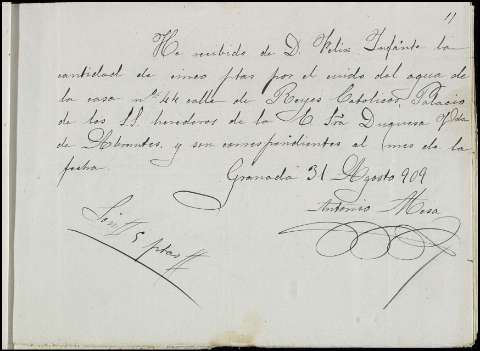 11
He recibido de D. Felix Infánte la
cantidad de cinco ptas por el cuido del agua de
la casa nº 44 calle de Reyes Catolicos, Palacio
de los SS. herederos de la E Sra Duquesa Vda
de Abrantes, y son correspondientes al mes de la
fecha.
Granada 31 Agosto 909
Antonio Mesa
Son # 5 ptas #